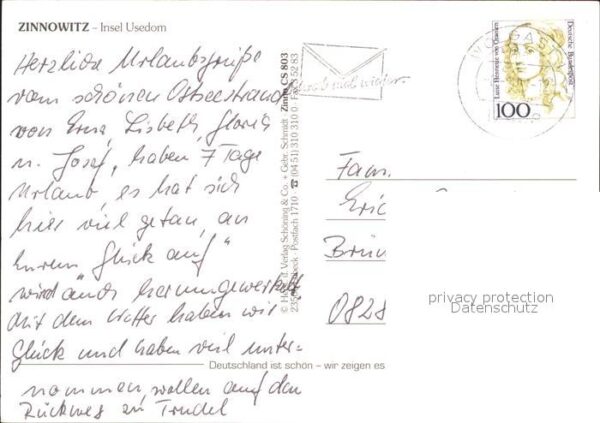 ZINNOWITZ – Insel Usedom
Herzliche Urlaubsgrüße
vom schönen Ostseestrand
von Erna, Lisbeth,
u. Josef, haben 7 Tage
Urlaub, es hat sich
hier viel getan, an
Eurem "Glück auf"
wird auch herumgewerkelt
Mit dem Wetter haben wir
Glück und haben viel unter-
nommen, wollen auf dem
Rückweg zu Trudel
Deutschland ist schön – wir zeigen es
Schöning & Co. + Gebr. Schmidt Zinno CS 803
Postfach 1710 ☎ (04 51) 310 310 Fax
Luise Henriette von Oranien
Deutsche Bundespost
100
WOLGAST
Fam.
Eric
Brün
0828
privacy protection
Datenschutz